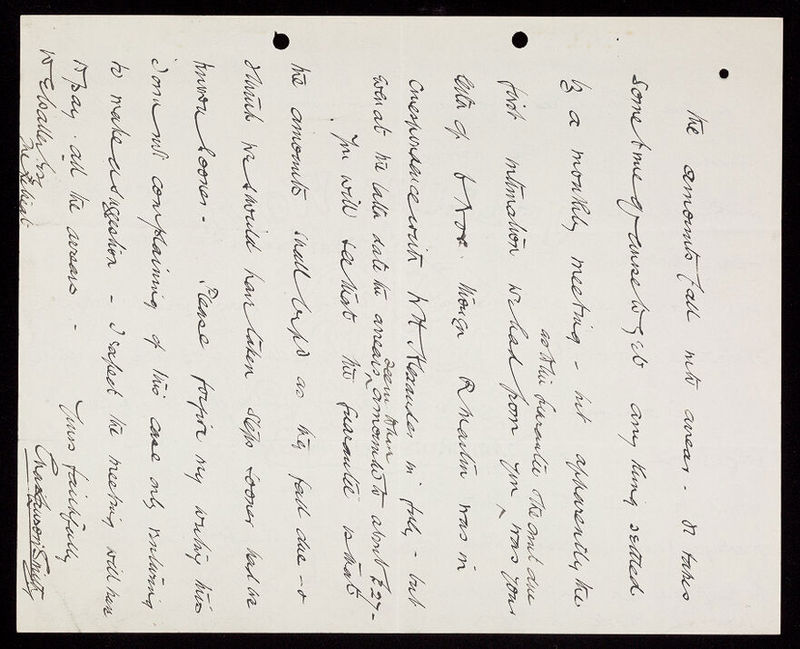 the amounts fall into arrear - It takes
some time of course to get any thing settled
by a monthly meeting - but apparently the
as to this guarantee & the amt due
first intimation we had from you was your
letter of 6 Nov. though R Martin was in
correspondence with W H Alexander in July - but
even at the later date the arrears seem to have amounted to about £27-
You will see that the guarantee is that
the amounts shall be pd as they fall due - &
I think we should have taken steps sooner had we
known sooner - Please forgive my writing this
I am not complaining of this case only venturing
to make a suggestion - I expect the meeting will have
to pay all the arrears - Yours faithfully
W E Waller Esq
The Retreat